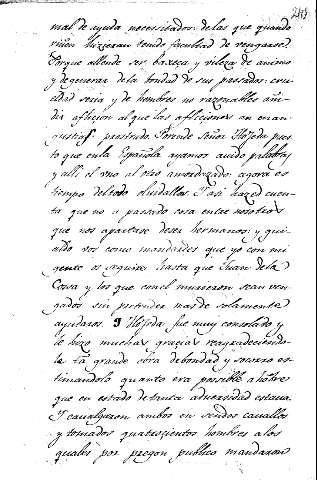 mas de ayuda necesitados: de las que quando
riñen hizieran tenido facultad de vengarse.
Porque allende ser baxeza y vileza de animo
y degenerar de la bondad de sus passados: cru
eldad seria y de hombres no razonables aña
dir afliction al que las afflictiones an en an
gustias. prestado Señor Hojeda pues
to que en la Española ayamos avido palabras
y alli el uno al otro amenazado: agora es
tiempo del todo olvidallas. Y asi hazed cuen
ta que no a passado cosa entre nosotros
que nos apartase de ser hermanos: y gui
aldo vos como mandardes que yo con mi
gente os seguire hasta que Juan de la
Cosa y los que con el murieron sean ven
gados sin pretender mas de solamente
ayudaros. Hojeda fue muy consolado y
le hizo muchas gracias reagradeciendo
le tā grande obra de bondad y socorro es
timandolo quanto era possible a hōbre
que en estado de tanta adversidad estava.
Y cavalgaron ambos en sendos cavallos
y tomados quatrocientos hombres a los
quales por pregon publico mandaron